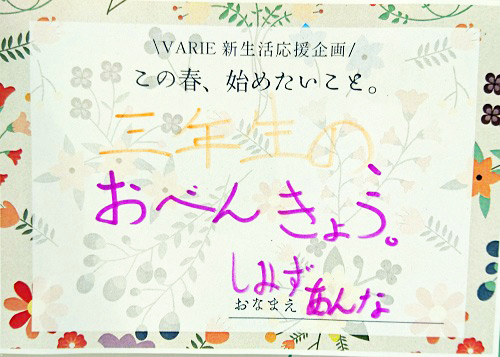 \VARIE 新生活応援企画/
この春、始めたいこと。
三年生の
おべんきょう。
しみずあんな
おなまえ